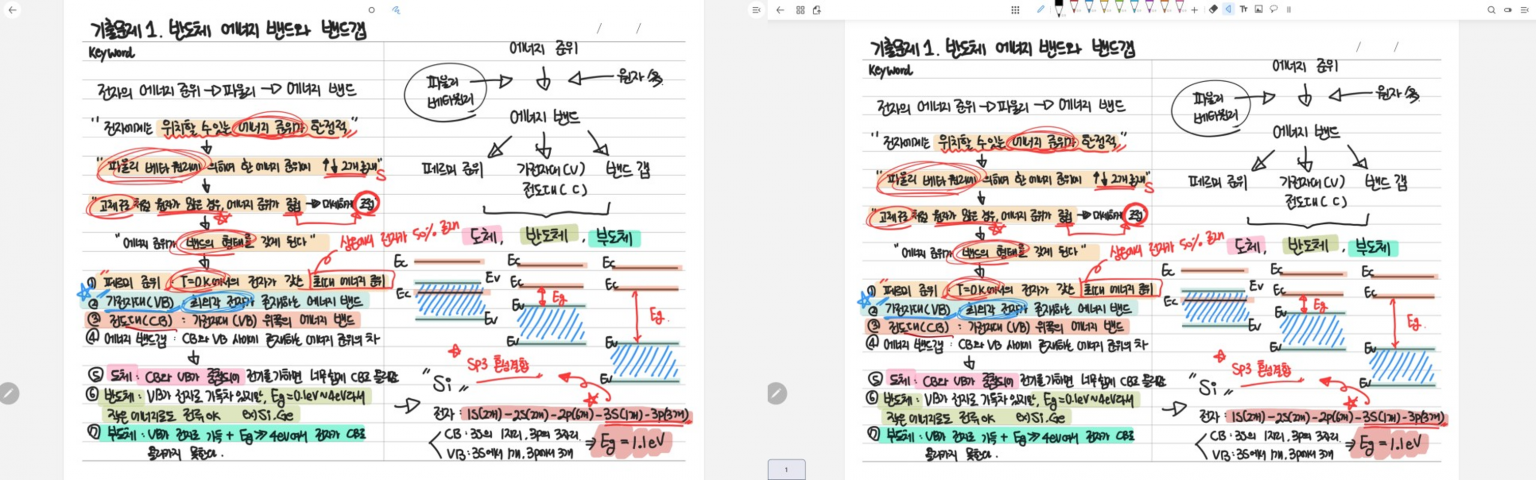 기출문제 1. 반도체 에너지 밴드와 밴드갭
/ /
Keyword
전자의 에너지 준위 → 파울리 → 에너지 밴드
"전자에게는 위치할 수 있는 에너지 준위가 한정적"
"파울리 배타원리에 의하여 한 에너지 준위에 ↑↓ 2개 존재"
S
"고체 처럼 원자가 많은 경우, 에너지 준위가 →
"에너지 준위가 밴드의 형태를 갖게 된다"
① 페르미 준위 T=0K에서의 전자가 갖는 최대 에너지 준위
② 가전자대(VB) 최외각 전자가 존재하는 에너지 밴드
③ 전도대(CB) : 가전자대(VB) 위쪽의 에너지 밴드
④ 에너지 밴드갭 : CB와 VB 사이에 존재하는 에너지 준위의 차
⑤ 도체 : CB와 VB가 중첩되어 전기를 가하면 너무 쉽게 CB로
⑥ 반도체 : VB가 전자로 가득차 있지만, Eg=0.1eV~4eV라서
작은 에너지로도 전류 OK ex) Si, Ge
⑦ 부도체 : VB가 전자로 가득 + Eg ≫ 4eV여서 전자가 CB로
올라가지 못한다.
에너지 준위
파울리
배타원리
원자/多
에너지 밴드
페르미 준위 가전자대(V) 밴드 갭
전도대(C)
상온에서 전자가 50%
도체, 반도체, 부도체
Ec Ec Ec
Ev Ec Ec
Ec Eg Ev Eg
Ev Ev Ev
Ev
SP3 혼성결합
"Si"
→ 전자 : 1S(2개)-2S(2개)-2P(6개)-3S(1개)-3P(3개)
CB : 3S의 1자리, 3P의 3자리. ⇒ Eg=1.1eV
VB : 3S에서 1개, 3P에서 3개
기출문제 1. 반도체 에너지 밴드와 밴드갭
/ /
Keyword
전자의 에너지 준위 → 파울리 → 에너지 밴드
"전자에게는 위치할 수 있는 에너지 준위가 한정적"
"파울리 배타원리에 의하여 한 에너지 준위에 ↑↓ 2개 존재"
S
"고체 처럼 원자가 많은 경우, 에너지 준위가 →
"에너지 준위가 밴드의 형태를 갖게 된다"
① 페르미 준위 T=0K에서의 전자가 갖는 최대 에너지 준위
② 가전자대(VB) 최외각 전자가 존재하는 에너지 밴드
③ 전도대(CB) : 가전자대(VB) 위쪽의 에너지 밴드
④ 에너지 밴드갭 : CB와 VB 사이에 존재하는 에너지 준위의 차
⑤ 도체 : CB와 VB가 중첩되어 전기를 가하면 너무 쉽게 CB로
⑥ 반도체 : VB가 전자로 가득차 있지만, Eg=0.1eV~4eV라서
작은 에너지로도 전류 OK ex) Si, Ge
⑦ 부도체 : VB가 전자로 가득 + Eg ≫ 4eV여서 전자가 CB로
올라가지 못한다.
에너지 준위
파울리
배타원리
원자/多
에너지 밴드
페르미 준위 가전자대(V) 밴드 갭
전도대(C)
상온에서 전자가 50%
도체, 반도체, 부도체
Ec Ec Ec
Ev Ec Ec
Ec Eg Ev Eg
Ev Ev Ev
Ev
SP3 혼성결합
"Si"
→ 전자 : 1S(2개)-2S(2개)-2P(6개)-3S(1개)-3P(3개)
CB : 3S의 1자리, 3P의 3자리. ⇒ Eg=1.1eV
VB : 3S에서 1개, 3P에서 3개
1